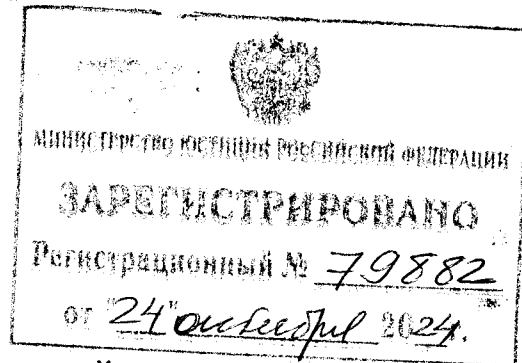 МИНИСТЕРСТВО ЮСТИЦИИ РОССИЙСКОЙ ФЕДЕРАЦИИ
ЗАРЕГИСТРИРОВАНО
Регистрационный № 79882
от "24" октября 2024.